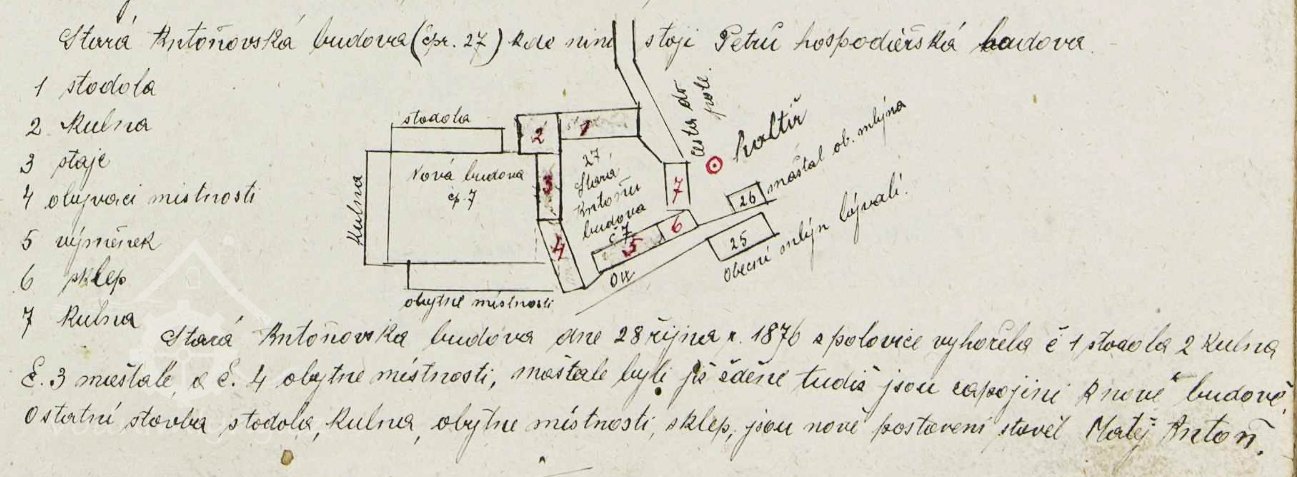 Stará Antoňovská budova (čpr. 27) kde nini stoji Petrů hospodářská budova.
1 stodola
2 Kulna
3 staje
4 obyvaci mistnosti
5 výměnek
6 sklep
7 Kulna
stodola
Kulna
Nová budova
čp. 7
obytne místnosti
2
1
3
4
5
6
7
27
Stará
Antoňu
budova
č 7
cesta do
pole.
kaltiř
26
maštal ob. mlýna
25
Obecní mlýn bývalí.
Stará Antoňovska budova dne 28 října r. 1876 z polovice vyhořela č 1 stodola 2 Kulna
č. 3 maštale a č. 4 obytne místnosti, maštale byli již zděne tudiž jsou zapojini k nové budově.
Ostatní stavba stodola, Kulna, obytne místnosti, sklep, jsou nově postaveni stavěl Matěj Antoň.